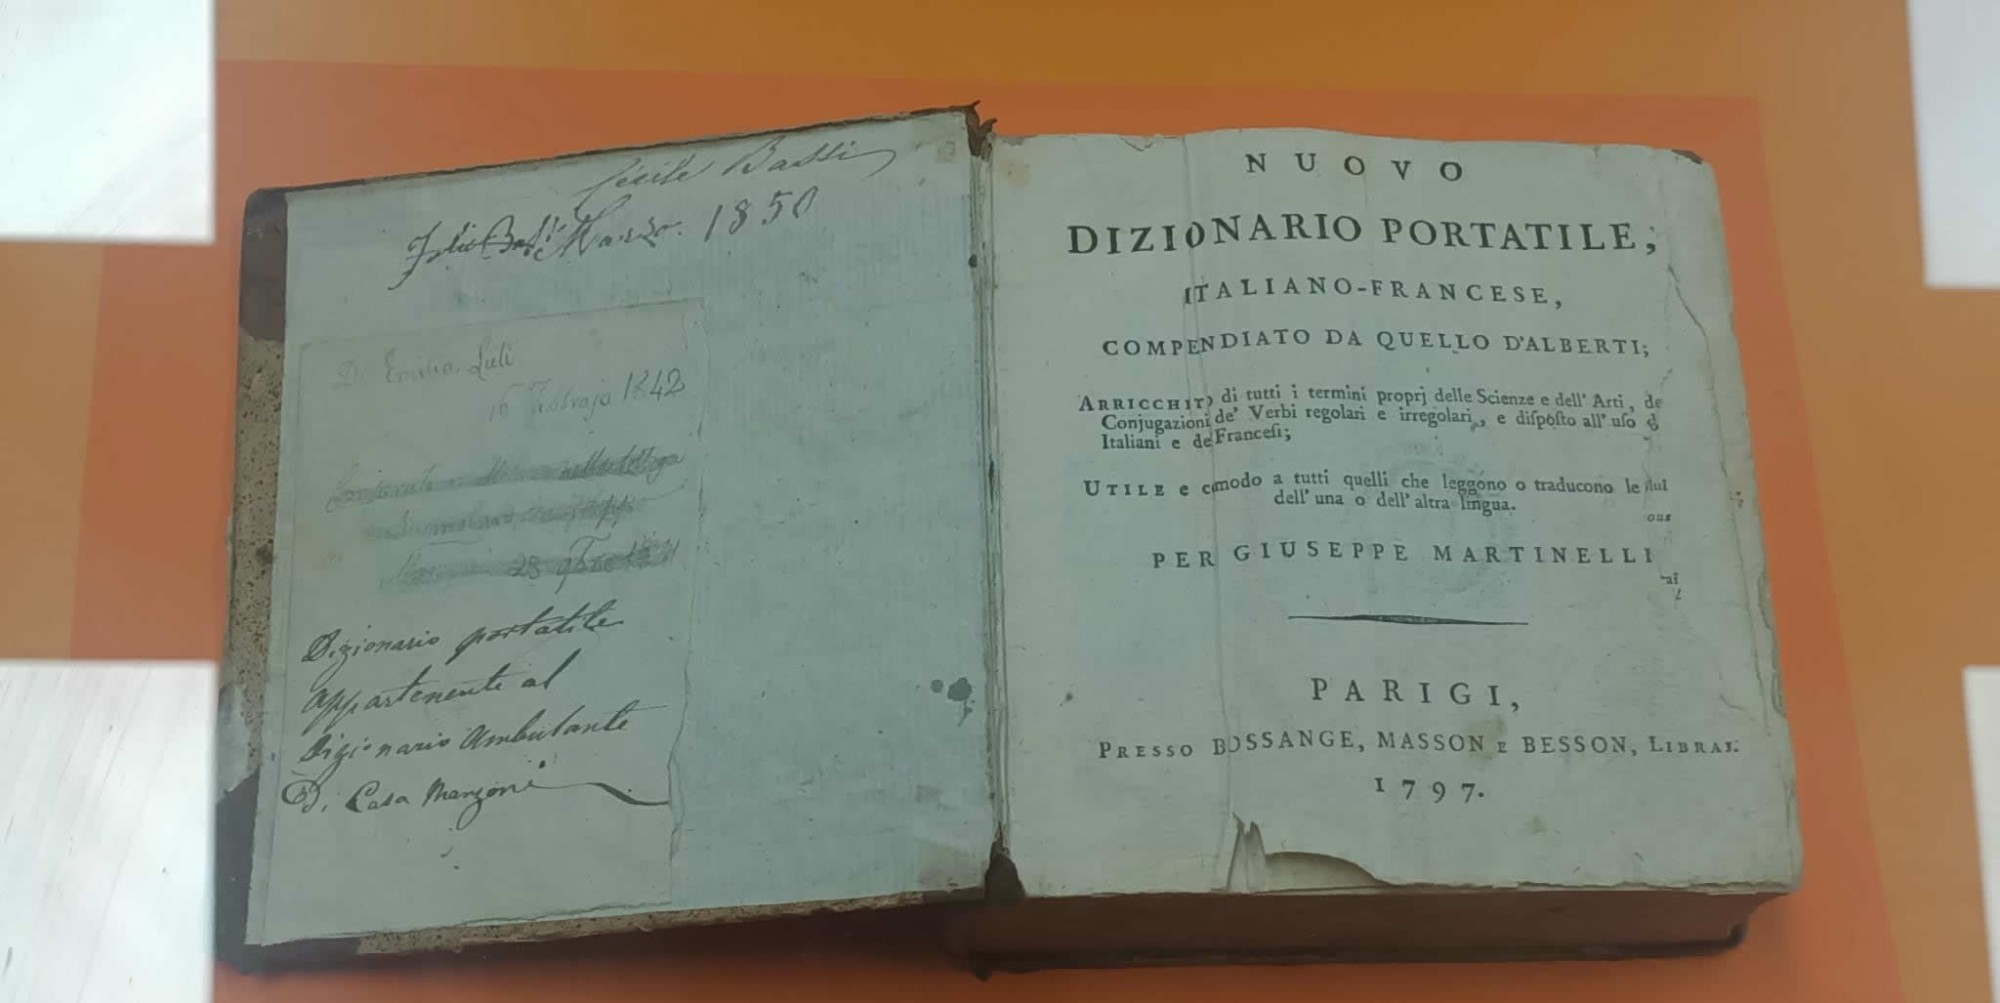 Cécile Bassi
Marzo. 1850
Di Emilia Luti
16 Febbrajo 1842
25
Dizionario portatile
appartenente al
Dizionario Ambulante
Di Casa Manzoni
NUOVO
DIZIONARIO PORTATILE;
ITALIANO-FRANCESE,
COMPENDIATO DA QUELLO D'ALBERTI;
ARRICCHIT di tutti i termini proprj delle Scienze e dell' Arti, de
Conjugazioni de' Verbi regolari e irregolari, e diſpoſto all' uſo d
Italiani e de Franceſi;
UTILE e cmodo a tutti quelli che leggono o traducono le
dell' una o dell' altra lingua.
ous
PER GIUSEPPE MARTINELLI
ai
PARIGI,
PRESSO BOSSANGE, MASSON E BESSON, LIBRAI.
1797.